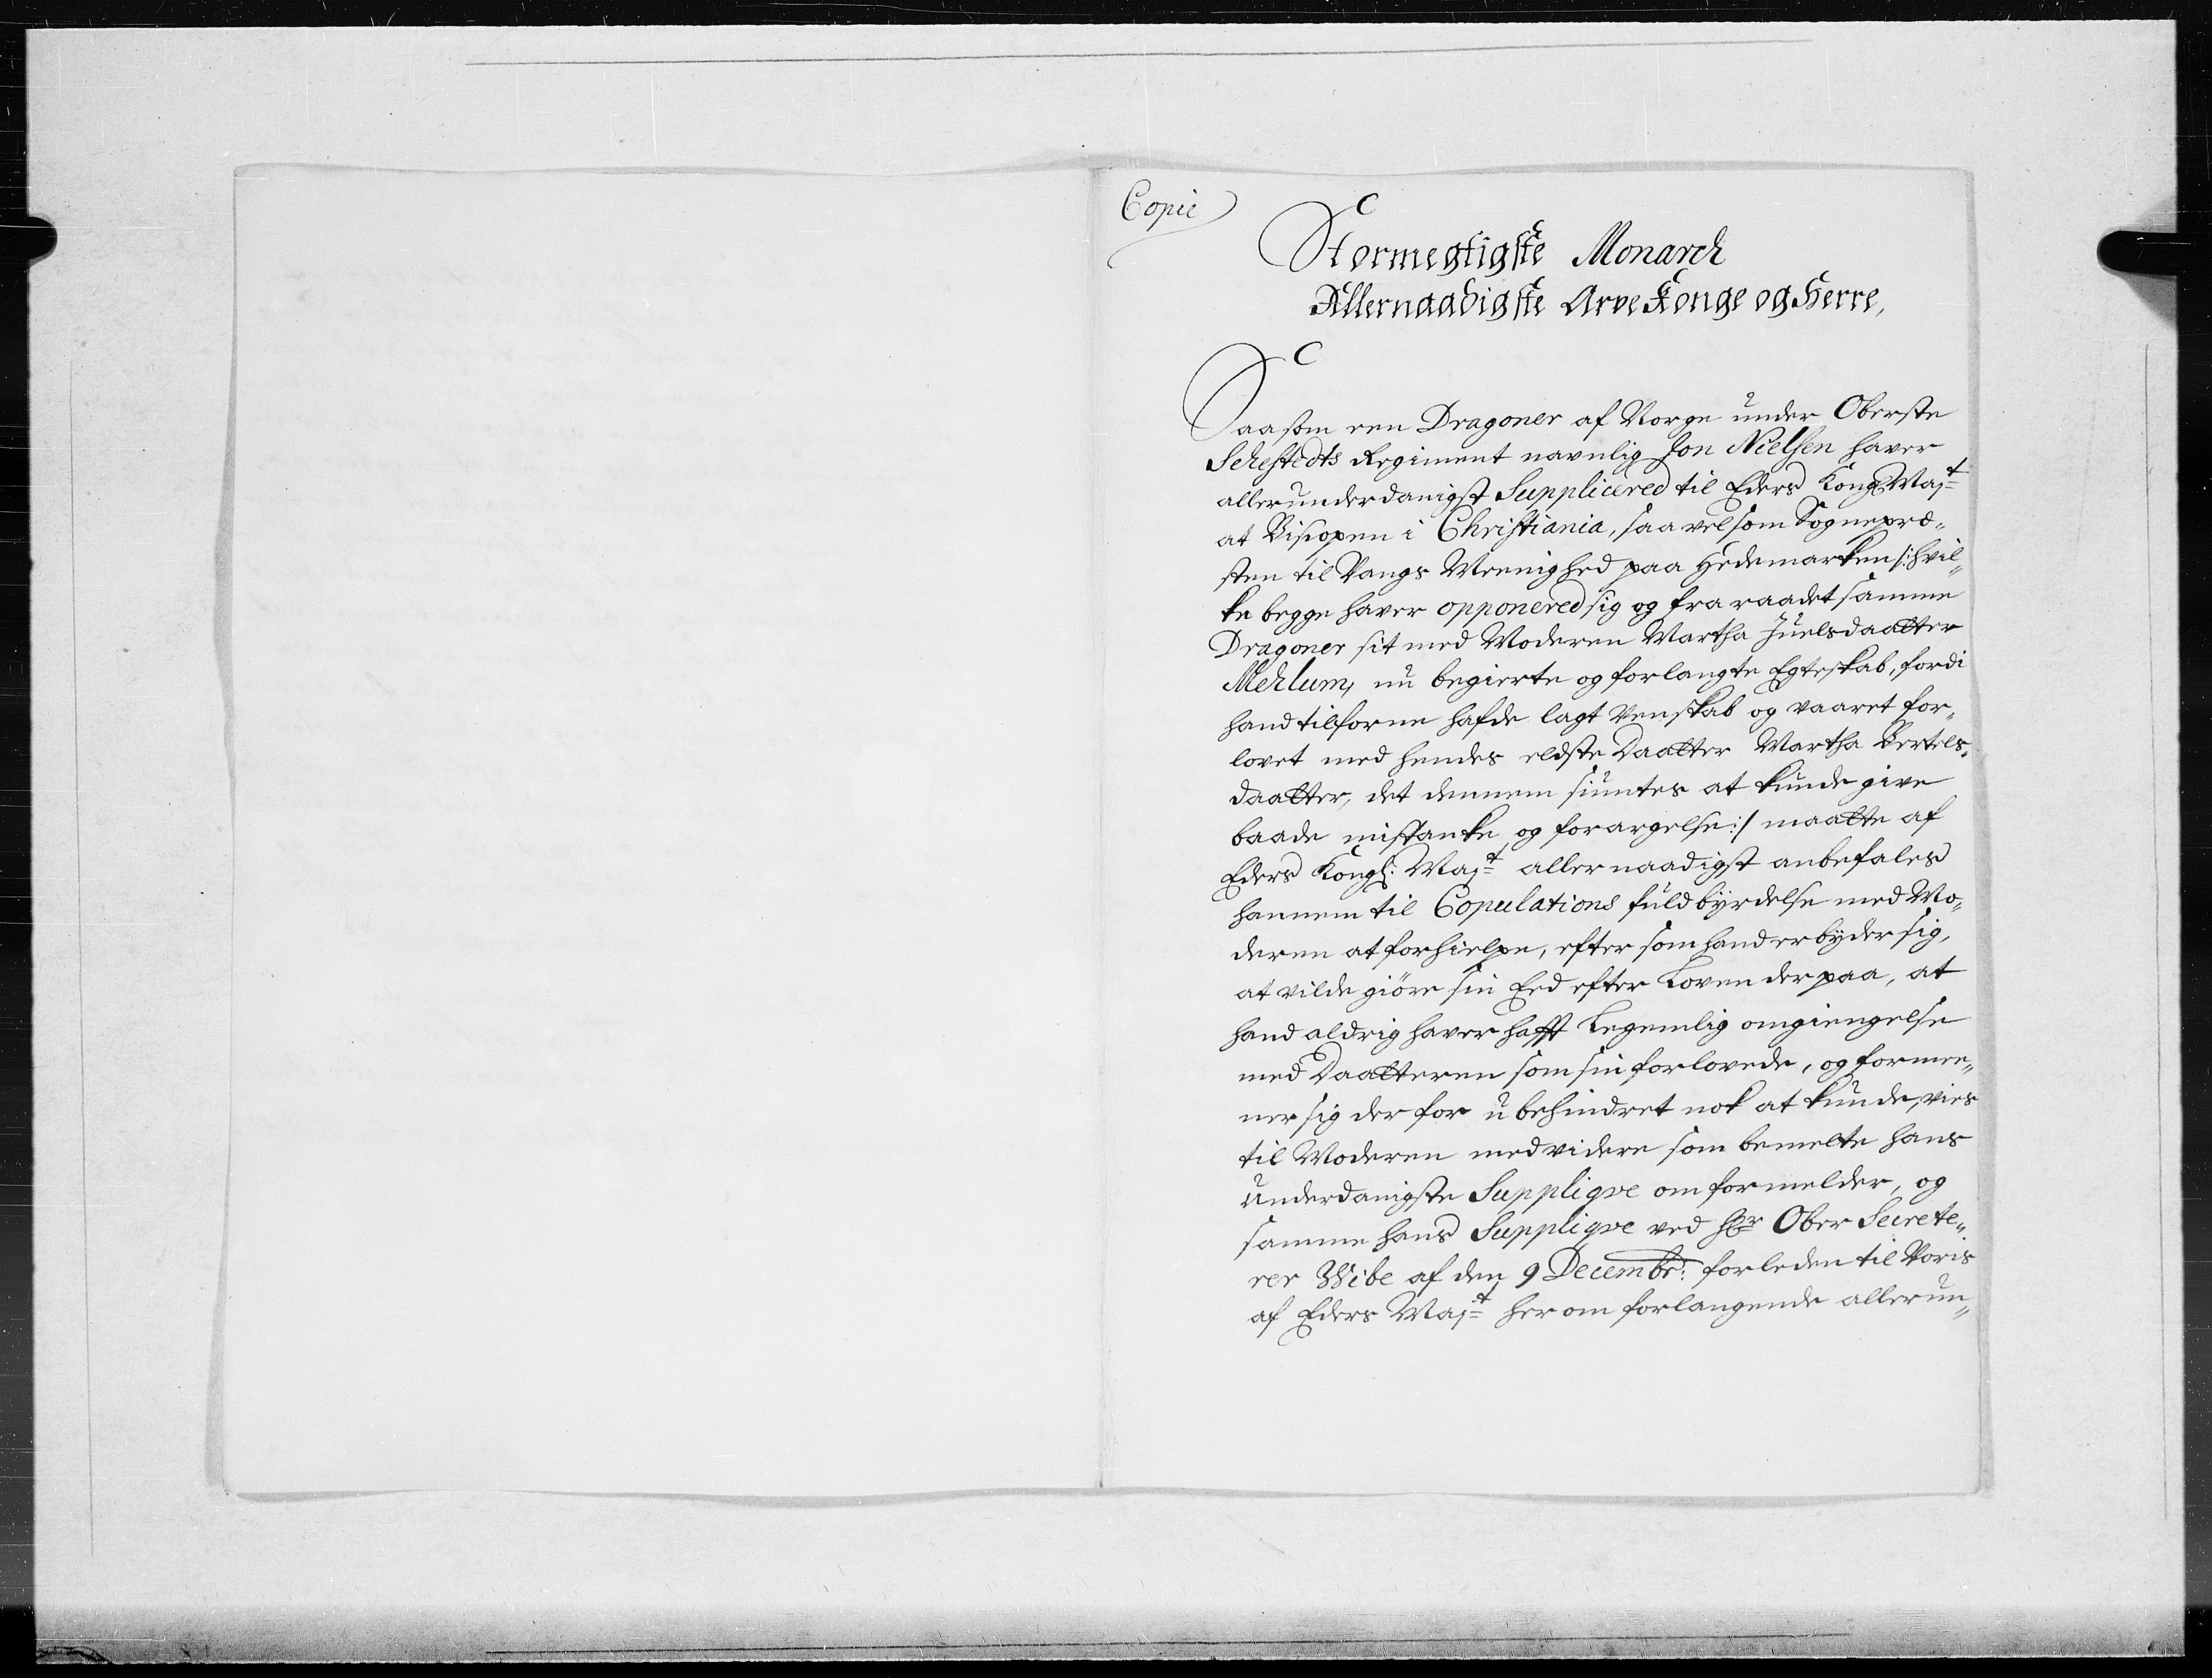 Copie
Stormegtigste Monarch
Allernaadigste Arve Konge og Herre,
Saasom een Dragoner af Norge under Oberste
Sehestedts Regiment navnlig Jon Nielsen haver
allerunderdanigst Supplicered til Eders Kongl Maj:t
at Biscopen i Christiania, saa vel som Sognepræ¬
sten til Vangs Meenighed paa Hedemarken /: hvil¬
ke begge haver opponered sig og fra raadet samme
Dragoner sit med Moderen Martha Juelsdaatter
Mehlum, nu begierte og forlangte Egteskab, fordi
hand tilforne hafde lagt Venskab og vaaret for¬
lovet med hendes eldste Daatter Martha Bertels¬
daatter, det dennem siuntes at kunde give
baade mistanke og forargelse :/ maatte af
Eders Kongl: Maj:t allernaadigst anbefales
hannem til Copulations fuldbyrdelse med Mo¬
deren at forhielpe, efter som hand erbyder sig,
at vilde giöre sin Eed efter Loven der paa, at
hand aldrig haver hafft Legemlig omgiengelse
med Daatteren som sin forlovede, og formee¬
ner sig der for u behindret nok at kunde, vies
til Moderen med videre som bemelte hans
underdanigste Suppliqve om formelder, og
samme hans Suppliqve ved Hr Ober Secrete¬
rer Wibe af den 9 Decembr: forleden til Voris
af Eders Maj:t her om forlangende allerun¬